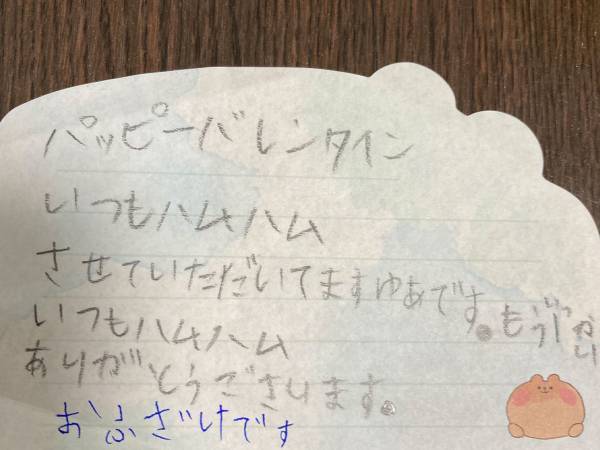 パッピーバレンタイン
いつもハムハム
させていただいてますゆあです。
いつもハムハム
ありがとうございます。
おふざけです